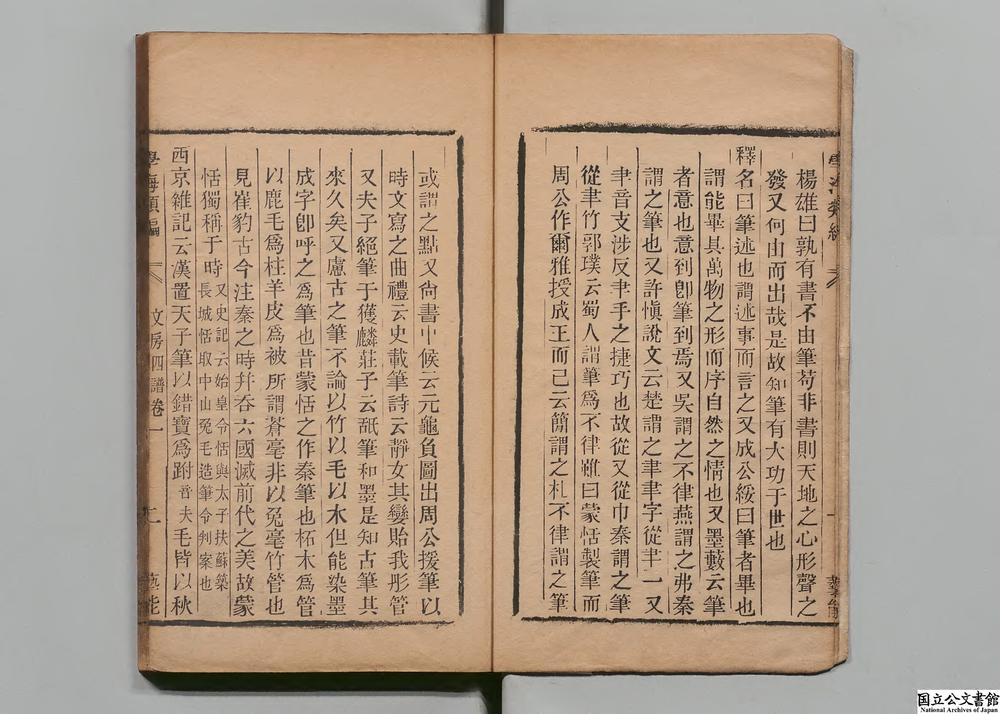 楊雄曰孰有書不由筆苟非書則天地之心形聲之
發又何由而出哉是故知筆有大功于世也
釋名曰筆述也謂述事而言之又成公綏曰筆者畢也
謂能畢具萬物之形而序自然之情也又墨藪云筆
者意也意到卽筆到焉又吳謂之不律燕謂之弗秦
謂之筆也又許愼說文云楚謂之聿聿字從𦘒一又
𦘒音支涉反𦘒手之捷巧也故從又從巾秦謂之筆
從聿竹郭璞云蜀人謂筆爲不律雖曰蒙恬製筆而
周公作爾雅授成王而已云簡謂之札不律謂之筆
或謂之點又尙書中候云元龜負圖出周公援筆以
時文寫之曲禮云史載筆詩云靜女其孌貽我彤管
又夫子絕筆于獲麟莊子云舐筆和墨是知古筆其
來久矣又慮古之筆不論以竹以毛以木但能染墨
成字卽呼之爲筆也昔蒙恬之作秦筆也柘木爲管
以鹿毛爲柱羊皮爲被所謂蒼毫非以兔毫竹管也
見崔豹古今注秦之時幷吞六國滅前代之美故蒙
恬獨稱于時又史記云始皇令恬與太子扶蘇築
長城恬取中山兔毛造筆令判案也
西京雜記云漢置天子筆以錯寶爲跗音夫毛皆以秋
學海類編
文房四譜卷一
二
學海類編
一
國立公文書館
National Archives of Japan